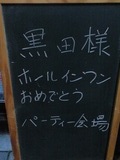 黒田様
ホールインワン
おめでとう
パーティー会場